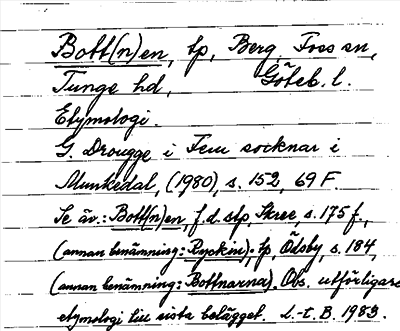 Bott(n)en, tp, Berg, Foss sn,
Tunge hd, Göteb. l.
Etymologi.
G. Drougge i Fem socknar i
Munkedal, (1980), s. 152, 69 F.
Se äv.: Bott(n)en, f.d. stp, Skree, s. 175 f.,
(annan benämning: Ryckin), tp, Ödsby, s. 184,
(annan benämning: Bottnarna). Obs. utförligare
etymologi till sista belägget. L.-t. B. 1983.